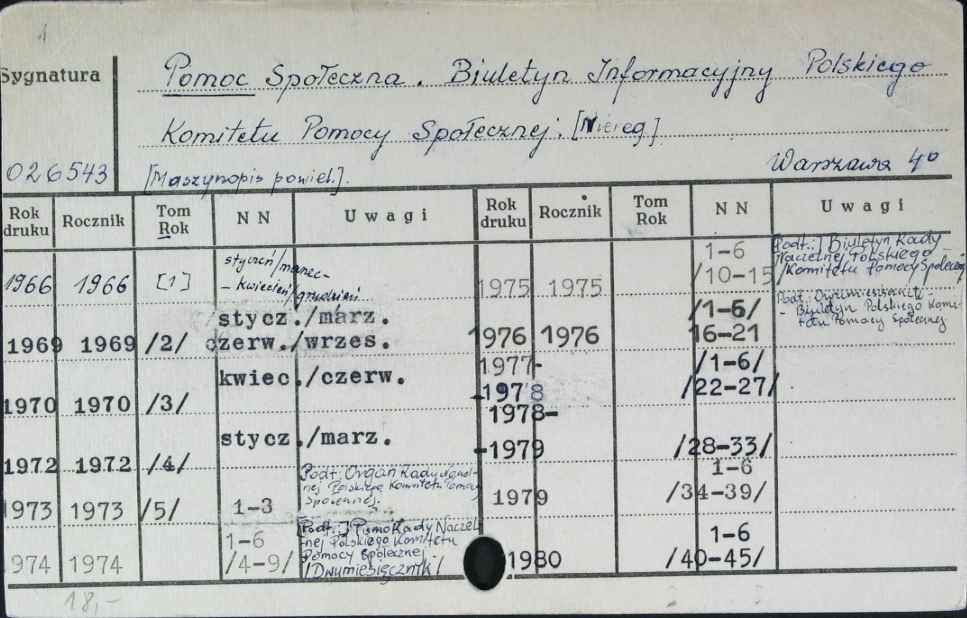 1
Sygnatura
Pomoc Społeczna. Biuletyn Informacyjny Polskiego
Komitetu Pomocy Społecznej. [Niereg.]
026543 [Maszynopis powiel.]. Warszawa 4°
Rok druku Rocznik Tom Rok NN Uwagi Rok druku Rocznik Tom Rok NN Uwagi
1966 1966 [1] styczeń/marzec-
- kwiecień/grudzień
1969 1969 /2/ stycz./marz.
czerw./wrzes.
1970 1970 /3/ kwiec./czerw.
1972 1972 /4/ stycz./marz.
1973 1973 /5/ 1-3 Podt.: Organ Rady Naczel-
nej Polskiego Komitetu Pomocy
Społecznej.
974 1974 1-6
/4-9/ [Podt.:] Pismo Rady Naczel-
nej Polskiego Komitetu
Pomocy Społecznej
/Dwumiesięcznik/
1975 1975 1-6
/10-15 [Podt.:] Biuletyn Rady
Naczelnej Polskiego
/Komitetu Pomocy Społecznej
1976 1976 /1-6/
16-21 Podt.:
- Biuletyn Polskiego Komi-
tetu Pomocy Społecznej
1977-
-1978 /1-6/
/22-27/
1978-
-1979 /28-33/
1979 1-6
/34-39/
1980 1-6
/40-45/
18,-